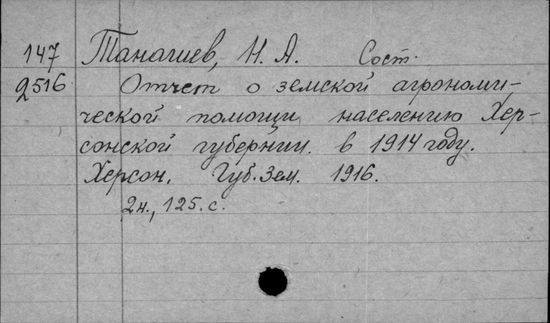 147 Танашев, Н. А. Сост.
2516 Отчет о земской агрономи-
ческой помощи населению Хер-
сонской губернии. в 1914 году.
Херсон. Губ. Зем. 1916.
2н., 125. с.